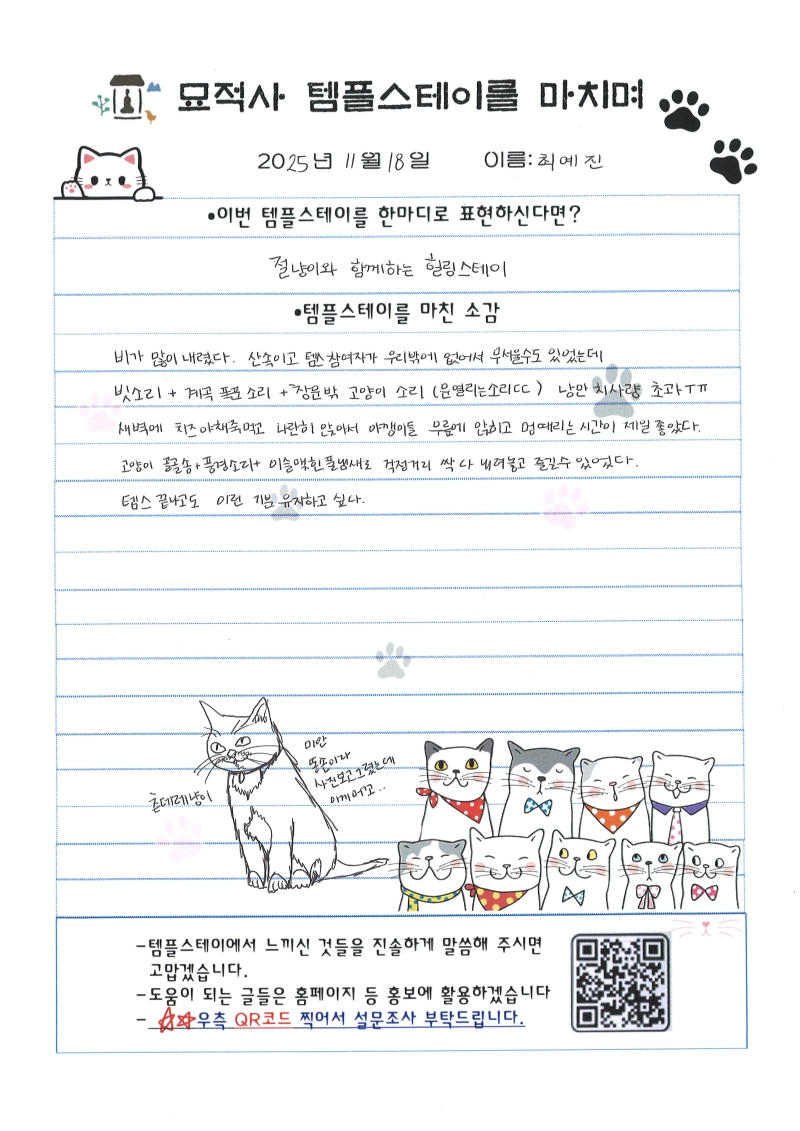 묘적사 템플스테이를 마치며
2025년 11월 18일 이름: 최예진
•이번 템플스테이를 한마디로 표현하신다면?
절냥이와 함께하는 힐링스테이
•템플스테이를 마친 소감
비가 많이 내렸다. 산속이고 템스참여자가 우리밖에 없어서 무서울수도 있었는데
빗소리 + 계곡 폭포 소리 + 창문밖 고양이 소리 (문열리는소리ㄷㄷ) 낭만 치사량 초과ㅠㅠ
새벽에 치즈야채죽먹고 나란히 앉아서 야깽이들 무릎에 앉히고 멍때리는 시간이 제일 좋았다.
고양이 골골송+풍경소리+ 이슬맺힌풀냄새로 걱정거리 싹 다 내려놓고 즐길수 있었다.
템스 끝나고도 이런 기분 유지하고 싶다.
미안
똥손이라
사진보고그렸는데
츤데레냥이
-템플스테이에서 느끼신 것들을 진솔하게 말씀해 주시면
고맙겠습니다.
-도움이 되는 글들은 홈페이지 등 홍보에 활용하겠습니다
- ☆☆우측 QR코드 찍어서 설문조사 부탁드립니다.